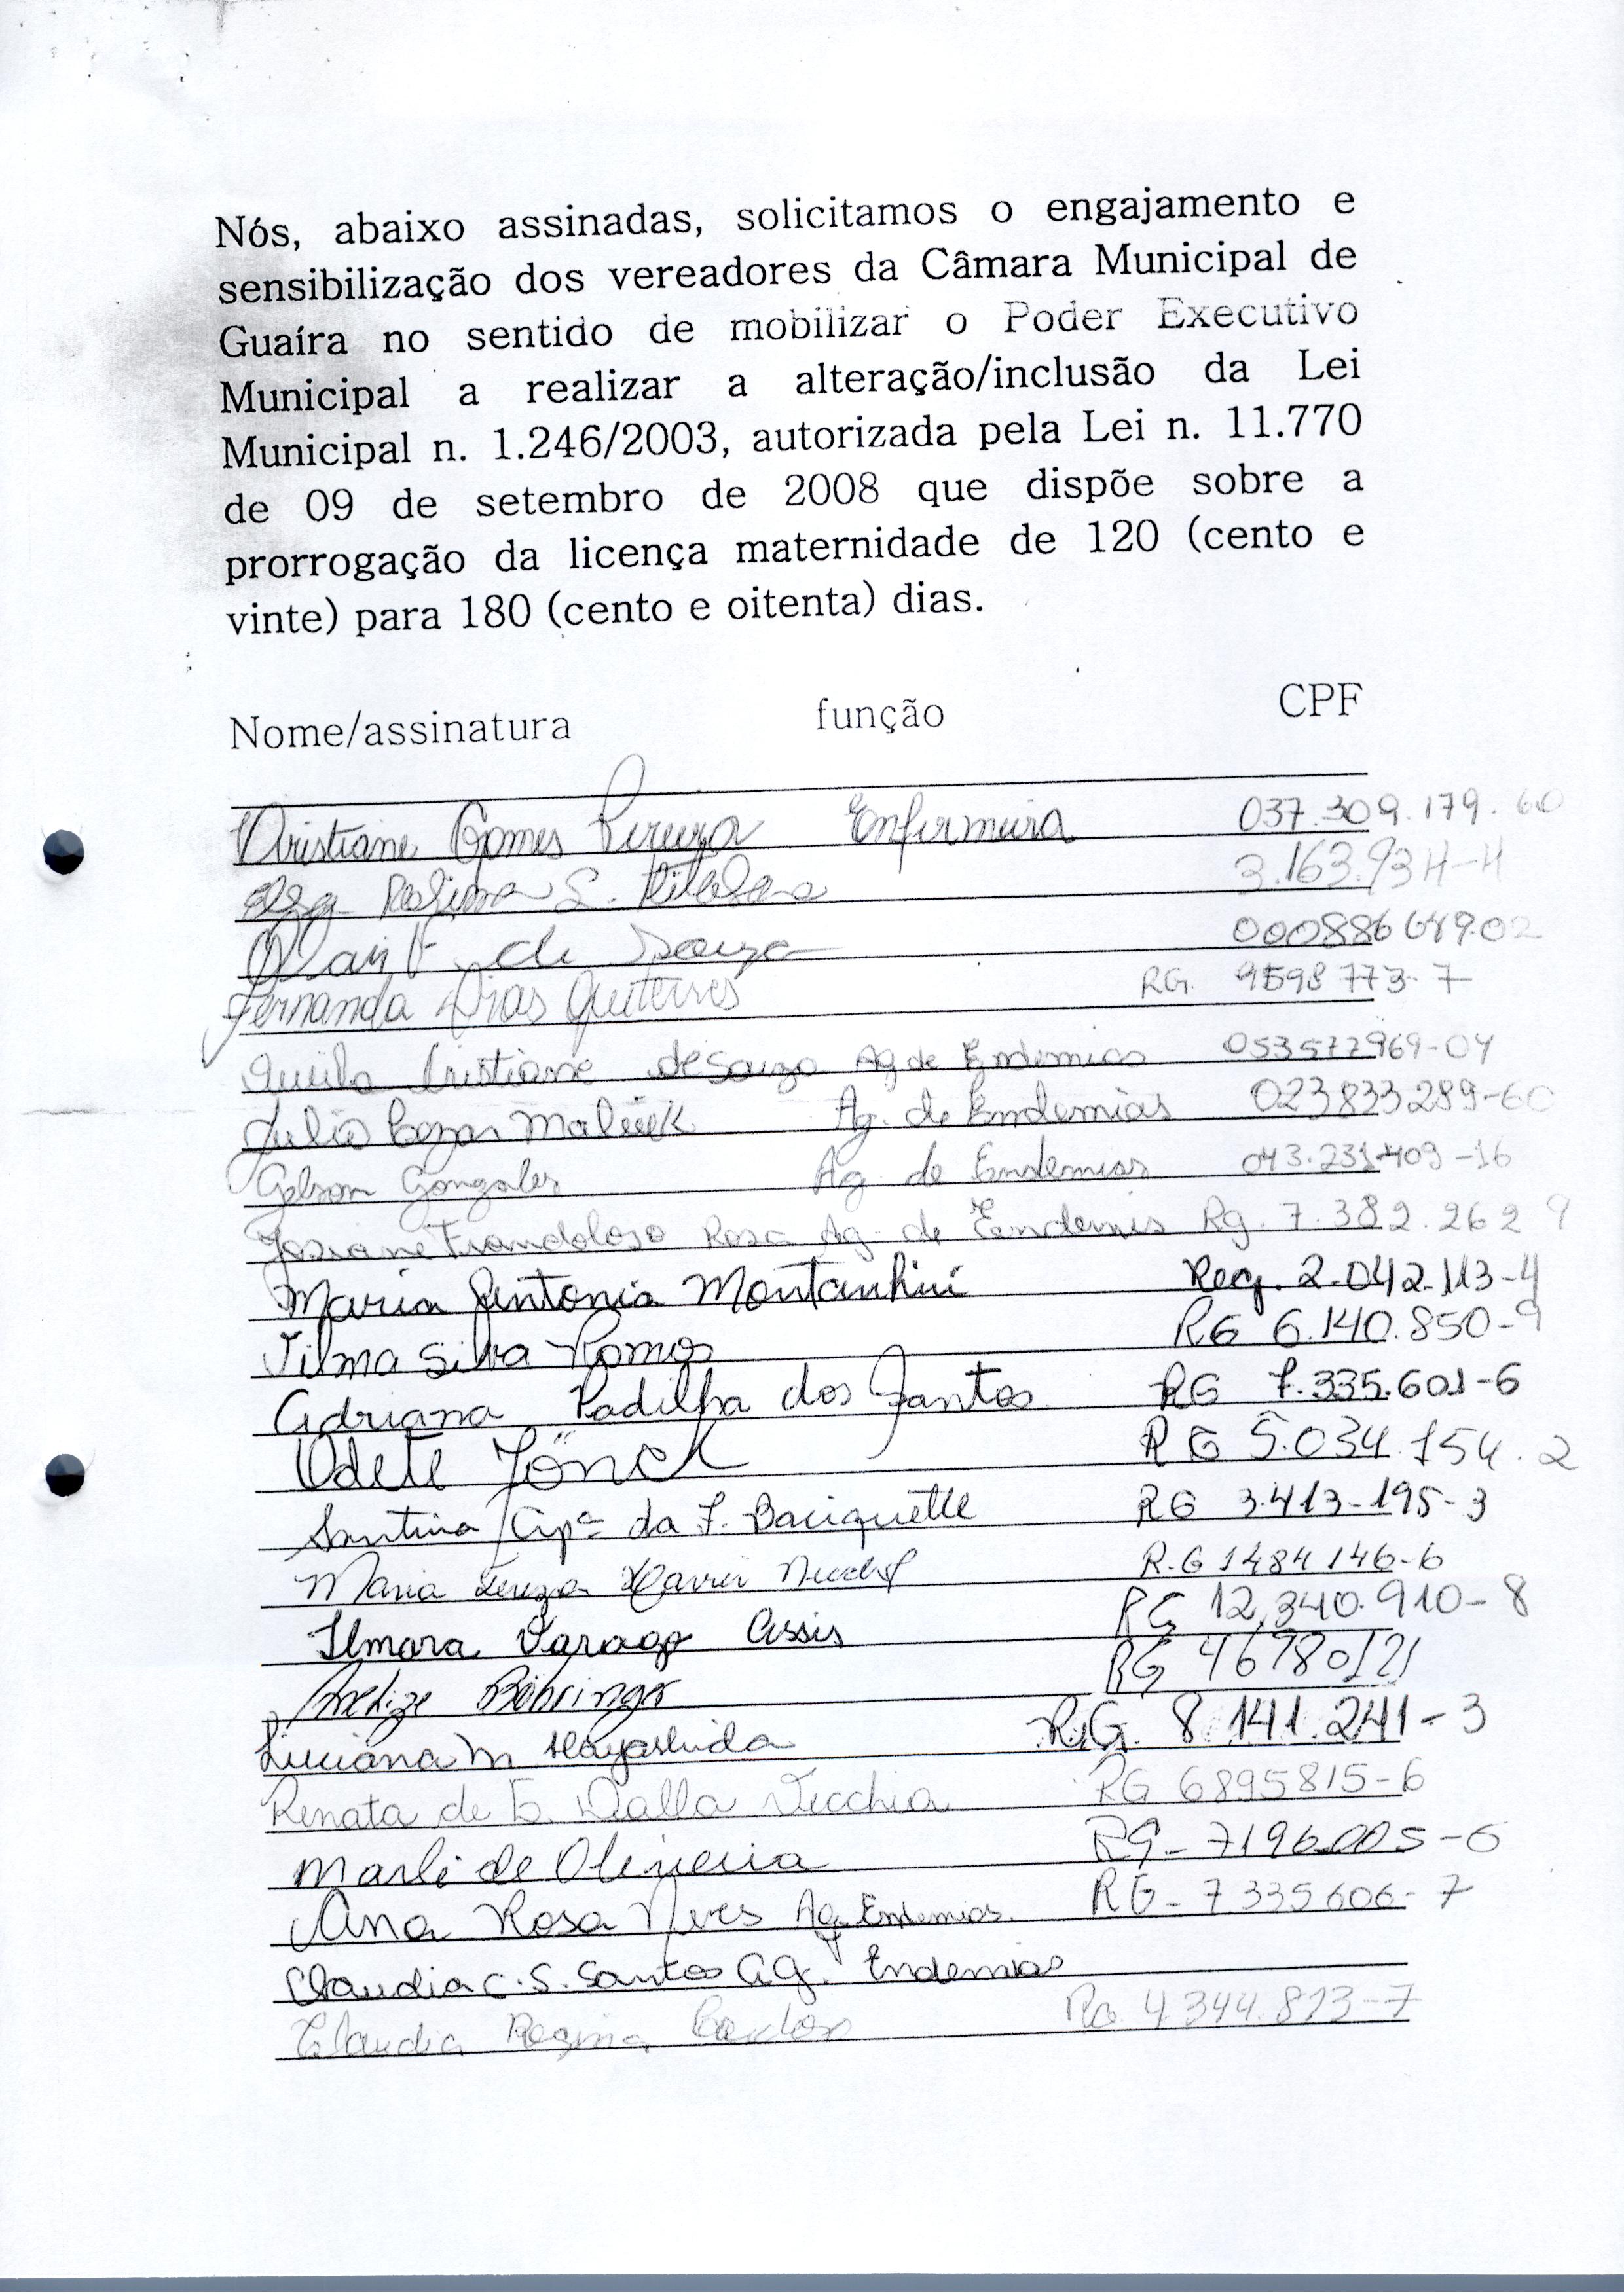 Nós, abaixo assinadas, solicitamos o engajamento e
sensibilização dos vereadores da Câmara Municipal de
Guaíra no sentido de mobilizar o Poder Executivo
Municipal a realizar a alteração/inclusão da Lei
Municipal n. 1.246/2003, autorizada pela Lei n. 11.770
de 09 de setembro de 2008 que dispõe sobre a
prorrogação da licença maternidade de 120 (cento e
vinte) para 180 (cento e oitenta) dias.
Nome/assinatura função CPF
Cristiane Gomes Pereira Enfermeira 037.309.179.60
3.163.934-4
de Souza 00088664902
Fernanda Dias Gutierres RG. 9598773-7
Cristiane de Souza Ag de Endemias 053577969-04
Julio Cezar Ag. de Endemias 023833289-60
Gelson Gonzales Ag. de Endemias 043.231409-16
Josiane Frandoloso Rosa Ag. de Endemis Rg. 7.382.262 9
Maria Antonia Montanhini Reg. 2.042.113-4
Silva Ramos RG 6.140.850-9
Adriana Padilha dos Santos RG 7.335.601-6
Odete Jönck RG 5.034.154.2
Santina da F. RG 3.413-195-3
Maria Xavier R.G 1484146-6
Ilmara Assis RG 12.340.910-8
Böhringer RG
Luciana M. Hayashida R.G. 8.141.241-3
Renata de Dalla Vecchia RG 6895815-6
Marli de Oliveira RG-
Ana Rosa Neves Ag. Endemias. RG-7335606-7
Claudia C.S. Santos Ag. Endemias
Claudia Regina RG 4.344.813-7